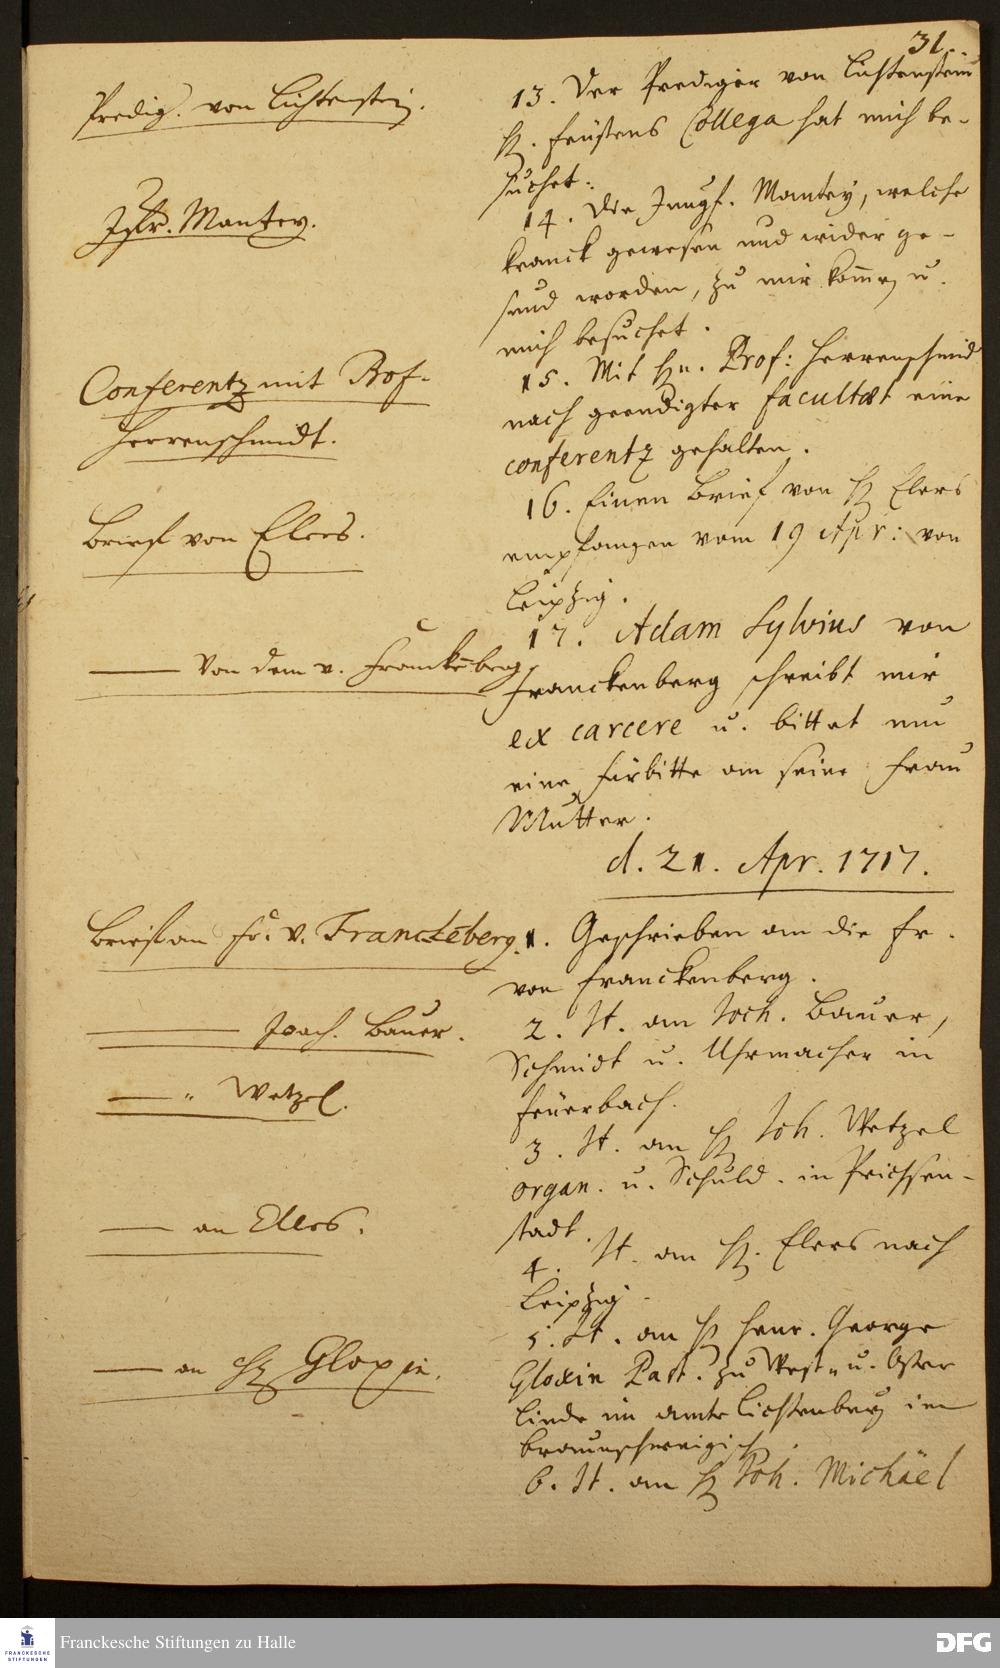 31.
Predig. von Lichtenstein.
13. Der Prediger von Lichtenstein
H. Feustens Collega hat mich be-
suchet.
Jgfr. Mantey.
14. Die Jungf. Mantey, welche
kranck gewesen und wider ge-
sund worden, zu mir komen, u.
mich besuchet.
Conferentz mit Prof.
Herrenschmidt.
15. Mit Hn. Prof: Herrenschmid
nach geendigter Facultæt eine
conferentz gehalten.
Brief von Elers.
16. Einen Brief von H Elers
empfangen vom 19 Apr: von
Leipzig.
—— Von dem v. Franckeberg
17. Adam Sylvius von
Franckenberg schreibt mir
ex carcere u. bittet um
eine fürbitte an seine Frau
Mutter.
d. 21. Apr. 1717.
Brief an Fr. v. Franckeberg.
1. Geschrieben an die Fr.
von Franckenberg.
—— Joach. Bauer.
2. It. an Joch. Bauer,
Schmidt u. Uhrmacher in
Feuerbach.
—— " Wetzel.
3. It. an H Joh. Wetzel
organ. u. Schuld. in Prichsen-
stadt.
—— an Elers.
4. It. an H. Elers nach
Leipzig.
—— an H Gloxin.
5. It. an H Henr. George
Gloxin Past. zu West- u. Oster
Linde im amte Lichtenberg im
braunschweigisch.
6. It. an H Joh. Michäel
Franckesche Stiftungen zu Halle
FRANCKESCHE
STIFTUNGEN
DFG